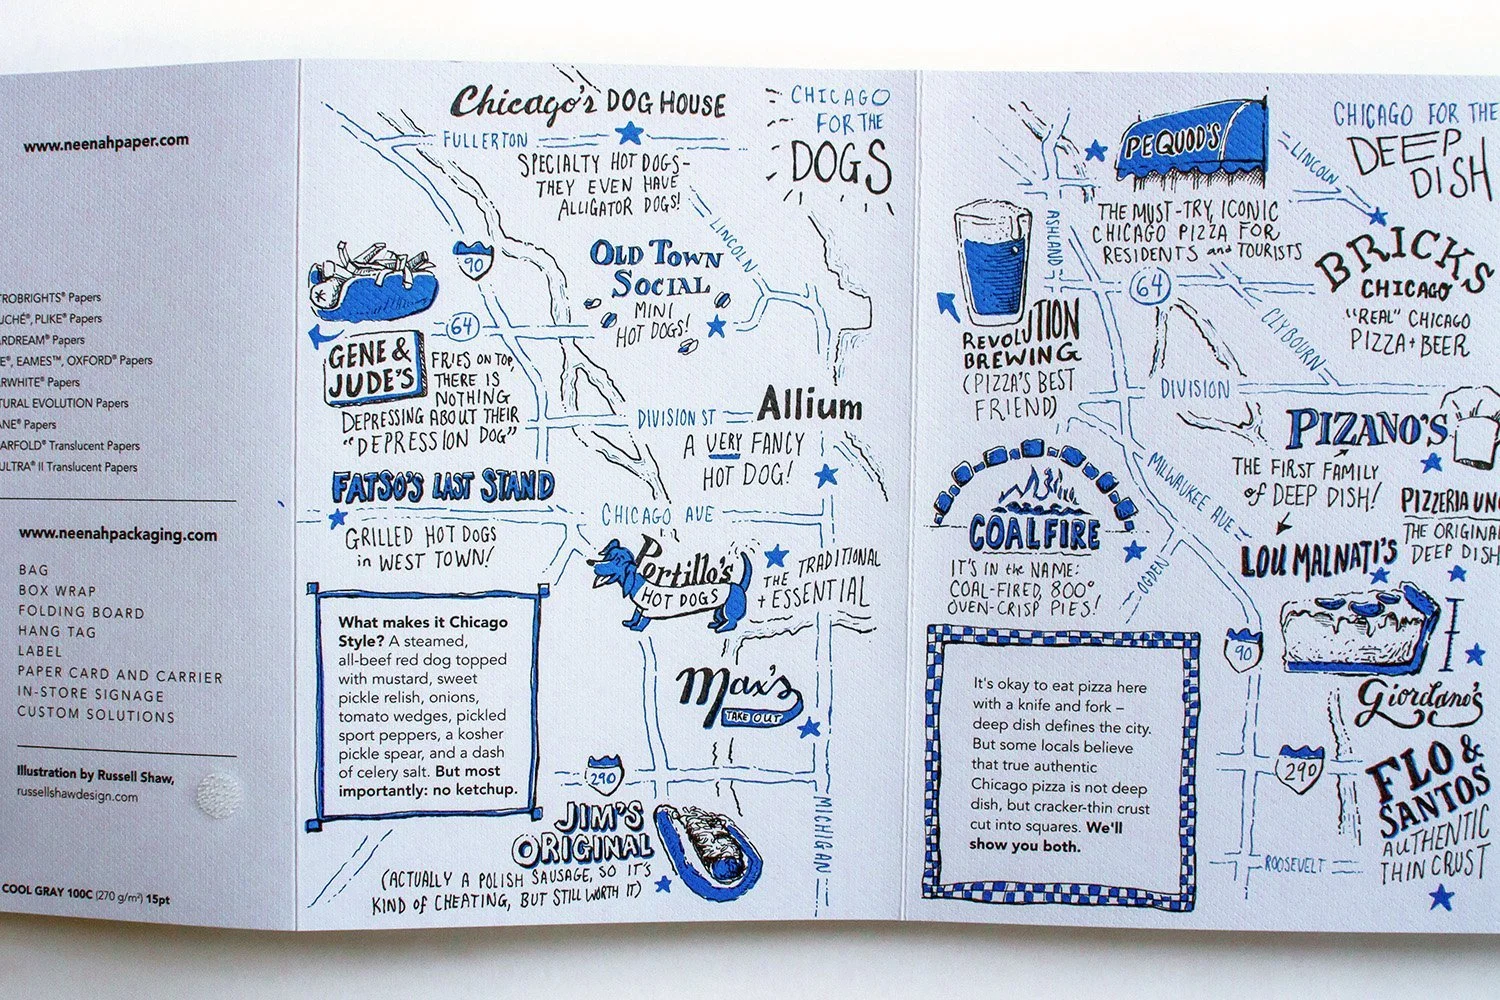 www.neenahpaper.com
TROBRIGHTS® Papers
UCHÉ®, PLIKE® Papers
RDREAM® Papers
E®, EAMES™, OXFORD® Papers
RWHITE® Papers
TURAL EVOLUTION Papers
ANE® Papers
ARFOLD® Translucent Papers
ULTRA® II Translucent Papers
www.neenahpackaging.com
BAG
BOX WRAP
FOLDING BOARD
HANG TAG
LABEL
PAPER CARD AND CARRIER
IN-STORE SIGNAGE
CUSTOM SOLUTIONS
Illustration by Russell Shaw,
russellshawdesign.com
COOL GRAY 100C (270 g/m²) 15pt
CHICAGO
FOR THE
DOGS
Chicago's DOG HOUSE
FULLERTON
SPECIALTY HOT DOGS-
THEY EVEN HAVE
ALLIGATOR DOGS!
LINCOLN
90
OLD TOWN
SOCIAL
MINI
HOT DOGS!
64
GENE &
JUDE'S
FRIES ON TOP,
THERE IS
NOTHING
DEPRESSING ABOUT THEIR
"DEPRESSION DOG"
DIVISION ST
Allium
A VERY FANCY
HOT DOG!
FATSO'S LAST STAND
GRILLED HOT DOGS
in WEST TOWN!
CHICAGO AVE
Portillo's
HOT DOGS
THE TRADITIONAL
+ ESSENTIAL
What makes it Chicago
Style? A steamed,
all-beef red dog topped
with mustard, sweet
pickle relish, onions,
tomato wedges, pickled
sport peppers, a kosher
pickle spear, and a dash
of celery salt. But most
importantly: no ketchup.
Max's
TAKE OUT
290
JIM'S
ORIGINAL
(ACTUALLY A POLISH SAUSAGE, SO IT'S
KIND OF CHEATING, BUT STILL WORTH IT)
MICHIGAN
CHICAGO FOR THE
DEEP
DISH
PEQUOD'S
THE MUST-TRY, ICONIC
CHICAGO PIZZA FOR
RESIDENTS and TOURISTS
LINCOLN
ASHLAND
BRICKS
CHICAGO
"REAL" CHICAGO
PIZZA + BEER
64
REVOLUTION
BREWING
(PIZZA'S BEST
FRIEND)
CLYBOURN
DIVISION
PIZANO'S
THE FIRST FAMILY
of DEEP DISH!
MILWAUKEE AVE
PIZZERIA UNO
THE ORIGINAL
DEEP DISH
LOU MALNATI'S
COALFIRE
IT'S IN the NAME:
COAL-FIRED, 800°
OVEN-CRISP PIES!
OGDEN
90
It's okay to eat pizza here
with a knife and fork –
deep dish defines the city.
But some locals believe
that true authentic
Chicago pizza is not deep
dish, but cracker-thin crust
cut into squares. We'll
show you both.
Giordano's
290
FLO &
SANTOS
AUTHENTIC
THIN CRUST
ROOSEVELT